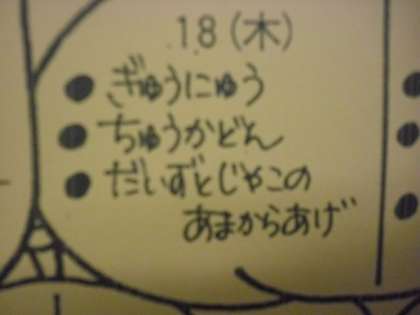 18(木)
●ぎゅうにゅう
●ちゅうかどん
●だいずとじゃこの
あまからあげ